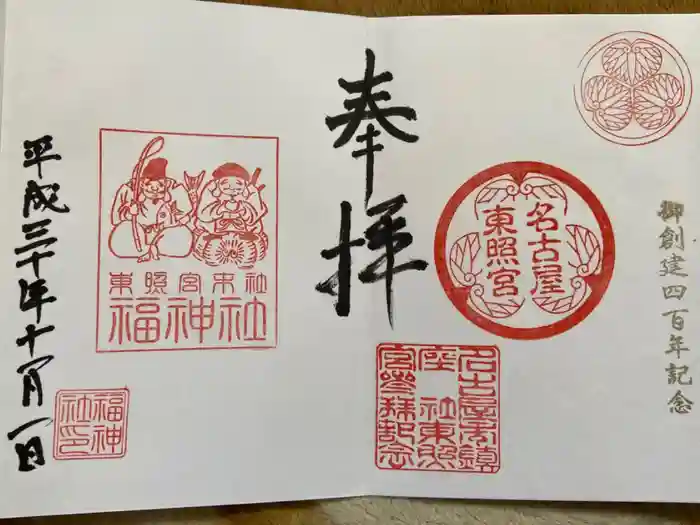 御創建四百年記念
名古屋
東照宮
奉拝
宮參拜記念
東照宮末社
福神社
平成三十年十一月一日
福神
社印